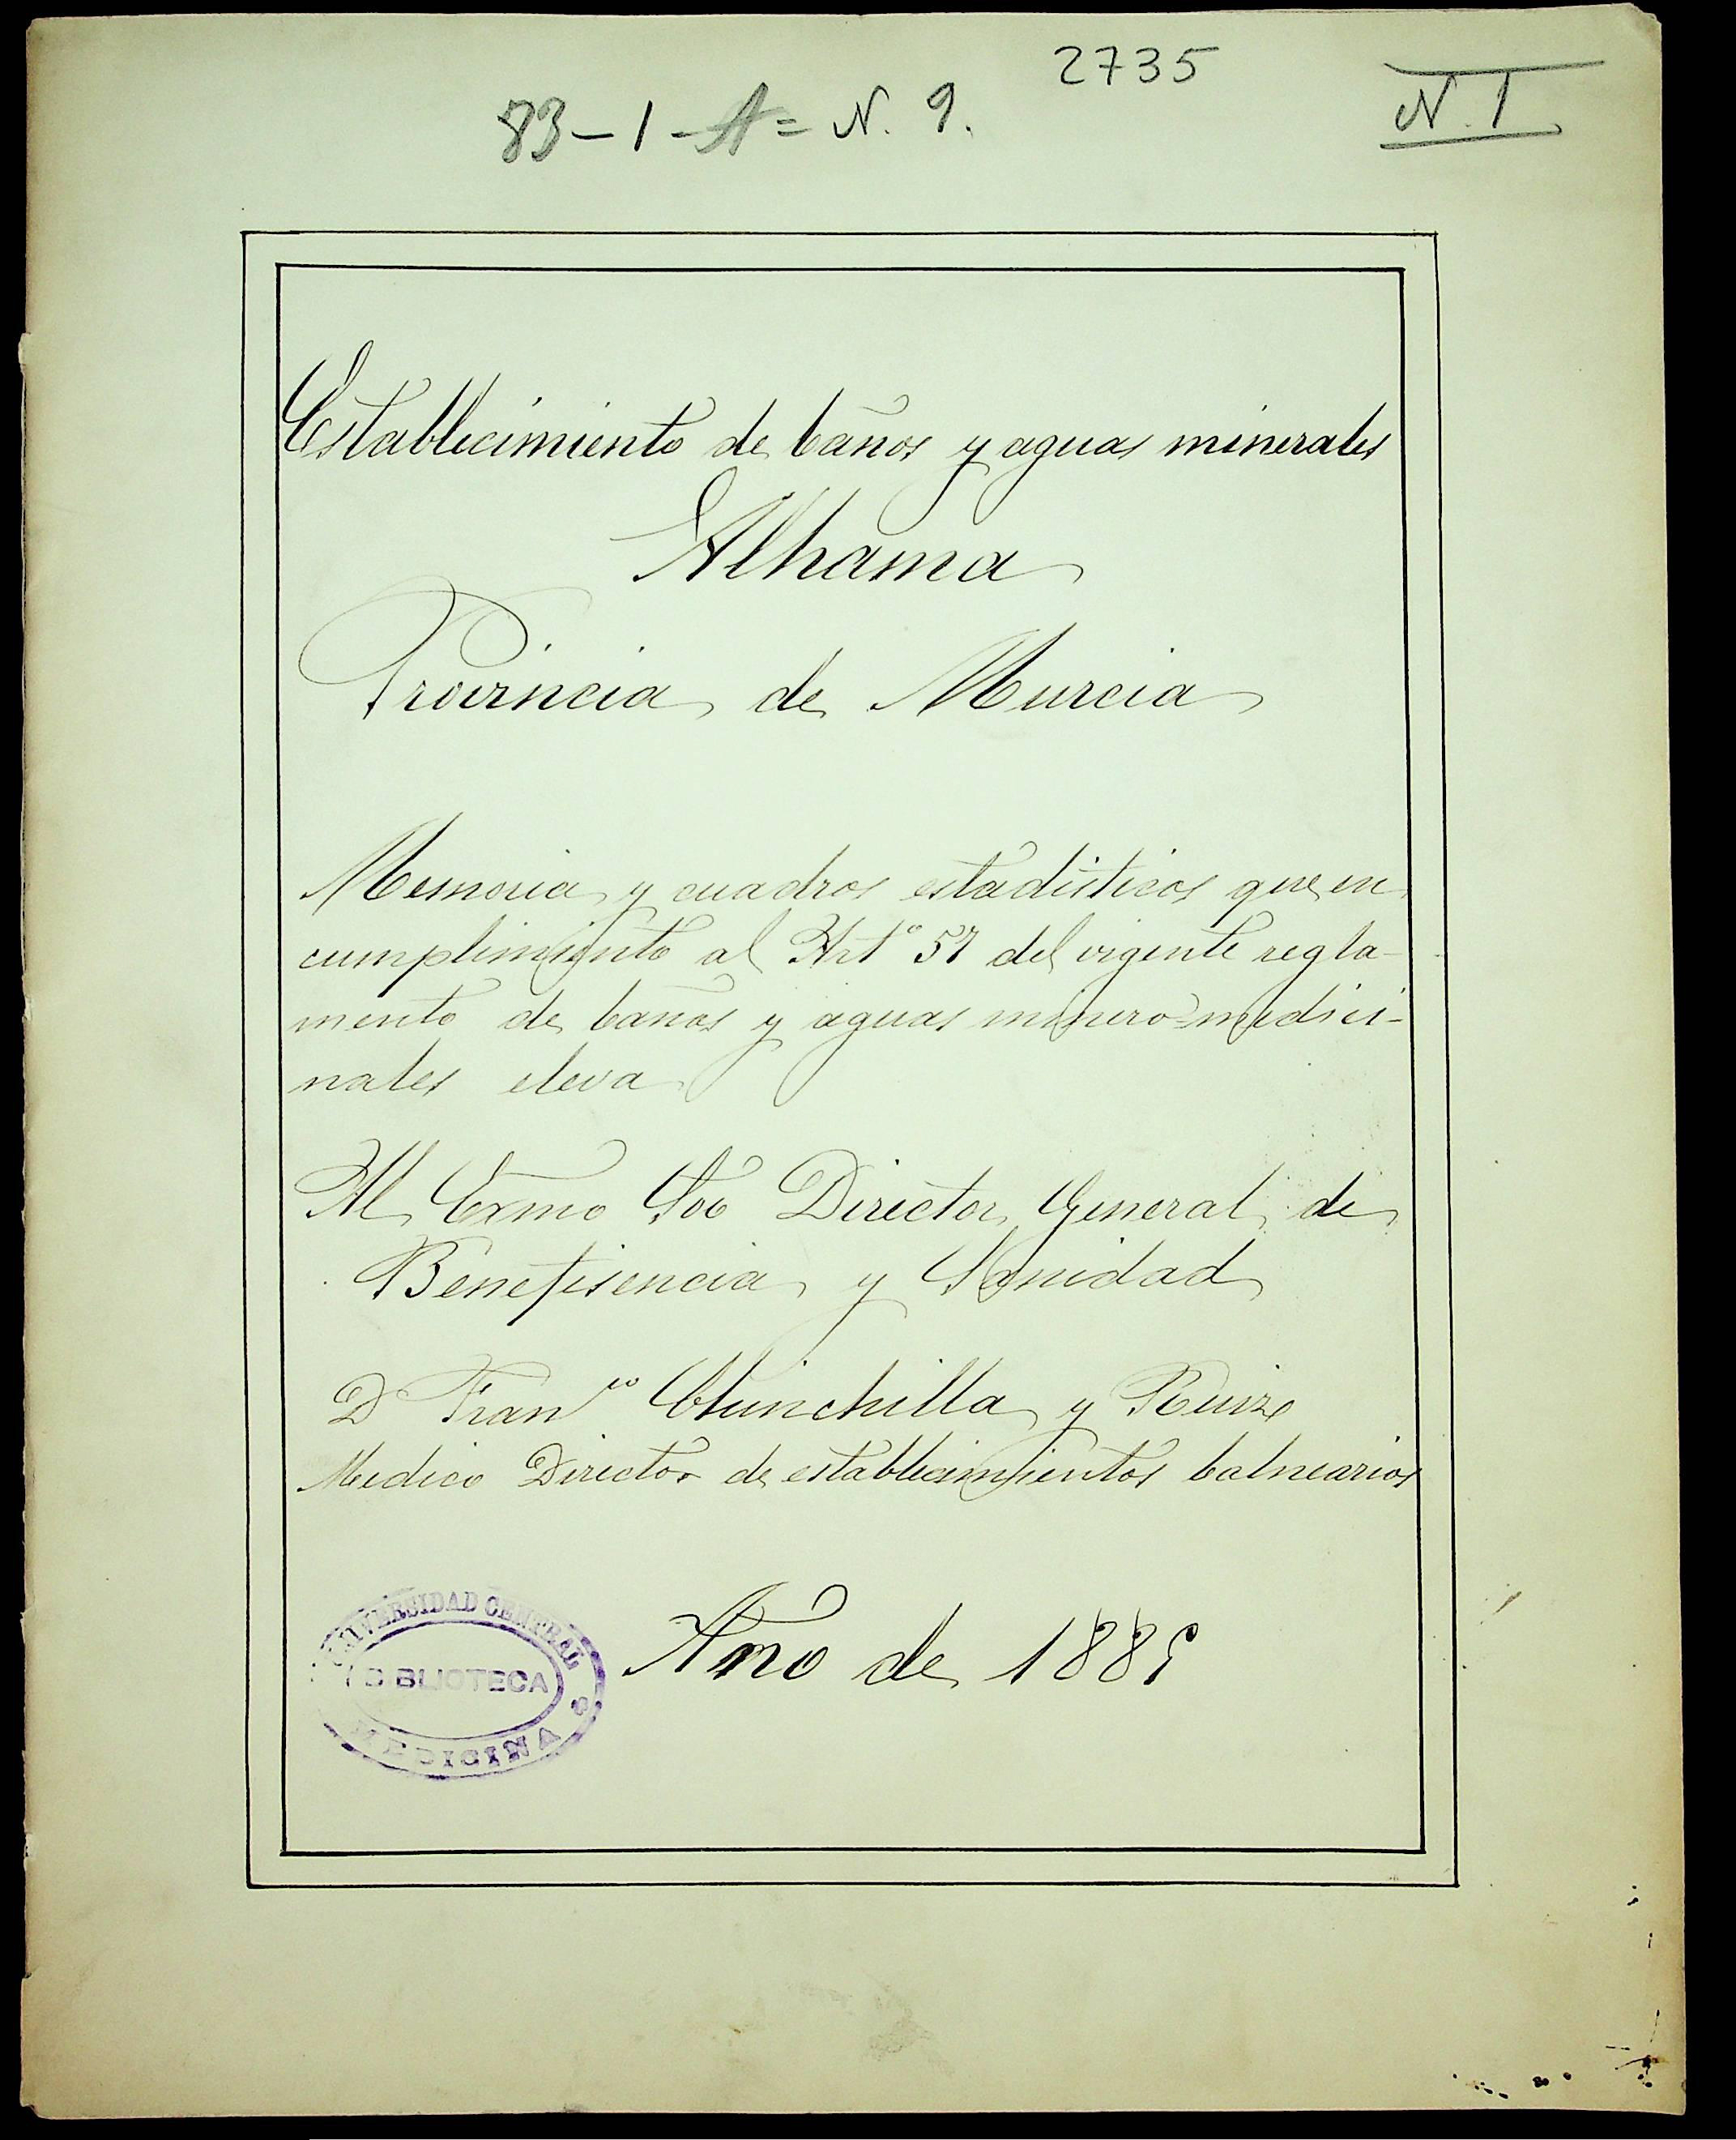 2735
N. 1
83-1-A= N. 9.
Establecimiento de baños y aguas minerales
Alhama
Provincia de Murcia
Memoria y cuadros estadisticos que en
cumplimiento al Artº 57 del vigente regla-
mento de baños y aguas minero=medici-
nales eleva
Al Exmo Sor Director General de
Benefisencia y Sanidad
D Franco Chinchilla y Ruiz
Medico Director de establecimientos balnearios
Año de 1889
UNIVERSIDAD CENTRAL
BIBLIOTECA
MEDICINA